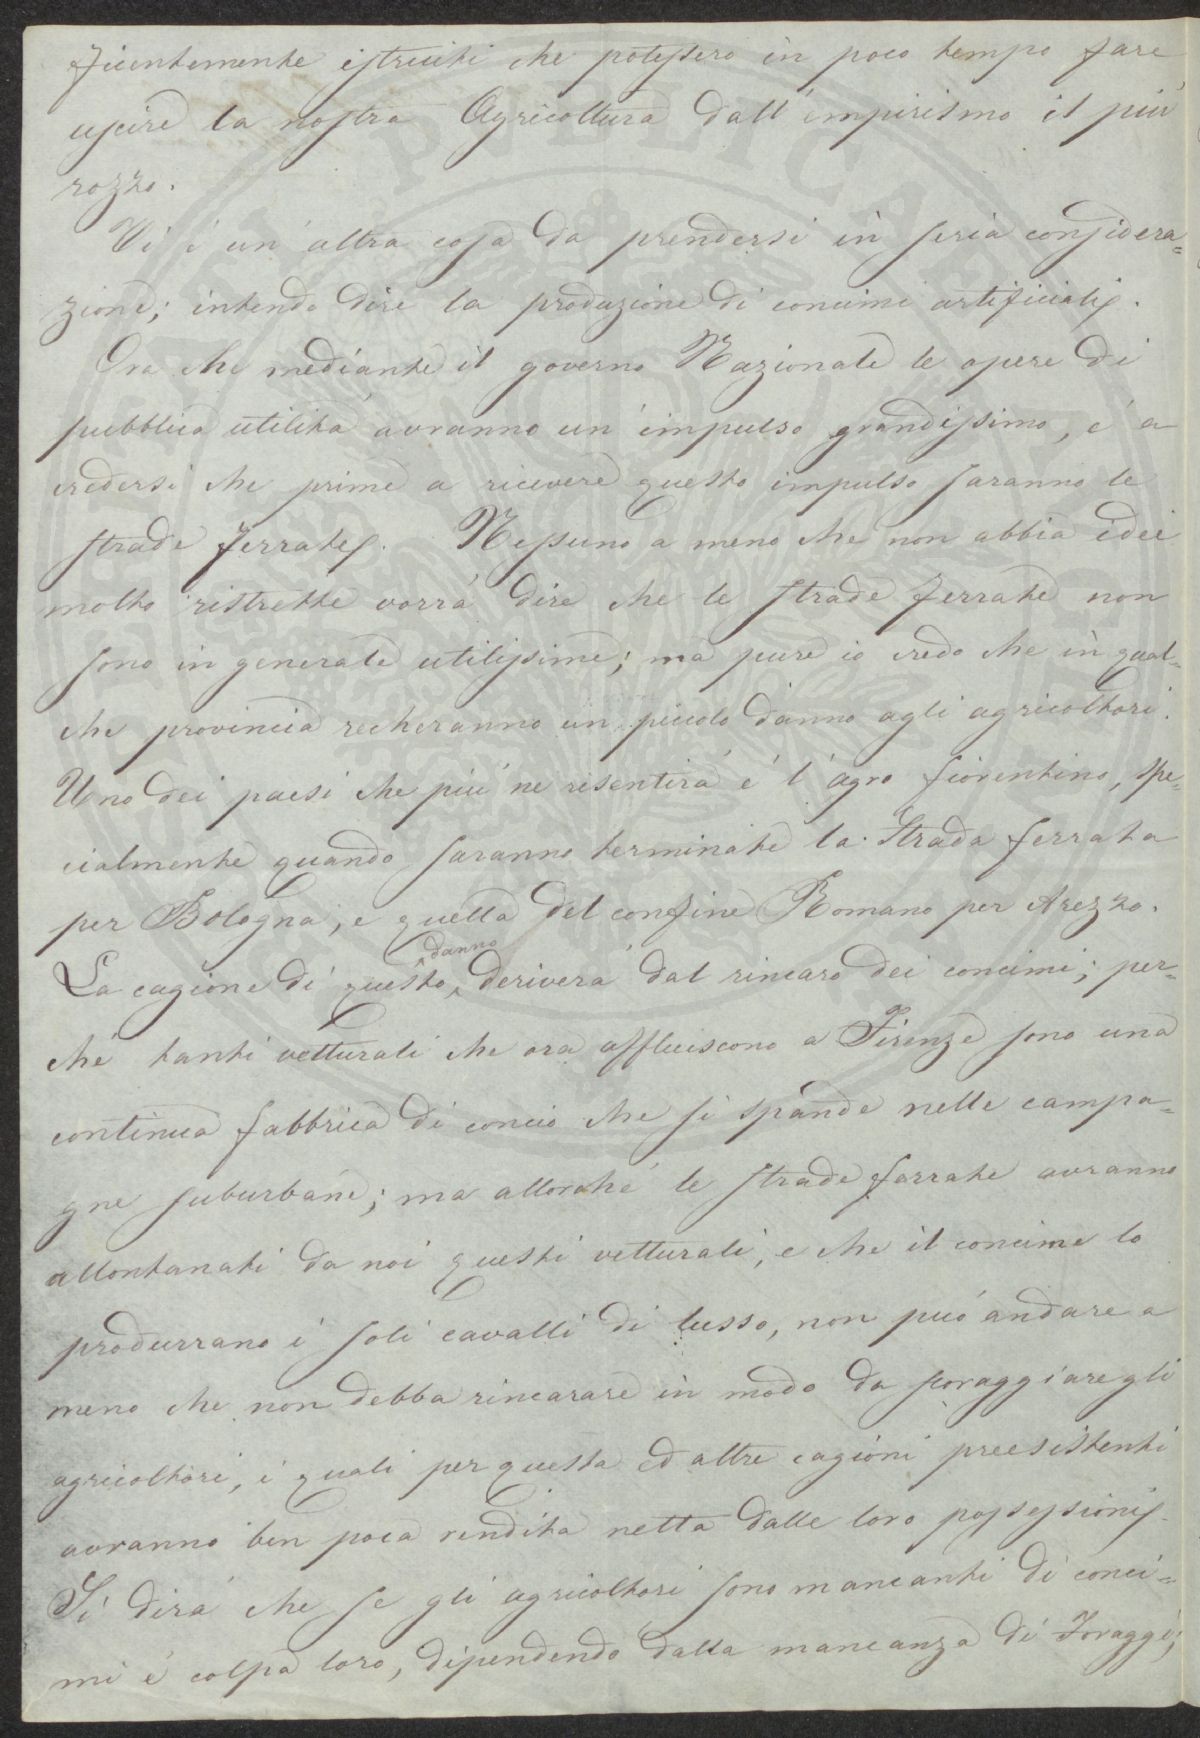 ficientemente istruiti che potessero in poco tempo fare
uscire la nostra Agricoltura dall'empirismo il più
rozzo.
Vi è un'altra cosa da prendersi in seria considera=
zione; intendo dire la produzione di concimi artificiali.
Ora che mediante il governo Nazionale le opere di
pubblica utilità avranno un'impulso grandissimo, é a
credersi che prime a ricevere questo impulso saranno le
strade ferrate. Nessuno a meno che non abbia idee
molto ristrette vorrà dire che le strade ferrate non
sono in generale utilissime; ma pure io credo che in qual=
che provincia recheranno un piccolo danno agli agricoltori.
Uno dei paesi che più ne risentirà é l'agro fiorentino, spe
cialmente quando saranno terminate la Strada ferrata
per Bologna, e quella del confine Romano per Arezzo.
La cagione di questo danno deriverà dal rincaro dei concimi; per=
ché tanti vetturali che ora affluiscono a Firenze sono una
continua fabbrica di concio che si spande nelle campa=
gne suburbane; ma allorché le strade ferrate avranno
allontanati da noi questi vetturali, e che il concime lo
produrrano i soli cavalli di lusso, non può andare a
meno che non debba rincarare in modo da scoraggiare gli
agricoltori, i quali per questa ed altre cagioni preesistenti
avranno ben poca rendita netta dalle loro possessioni.
Si dirà che se gli agricoltori sono mancanti di conci=
mi é colpa loro, dipendendo dalla mancanza di Foraggi;
PUBLICA